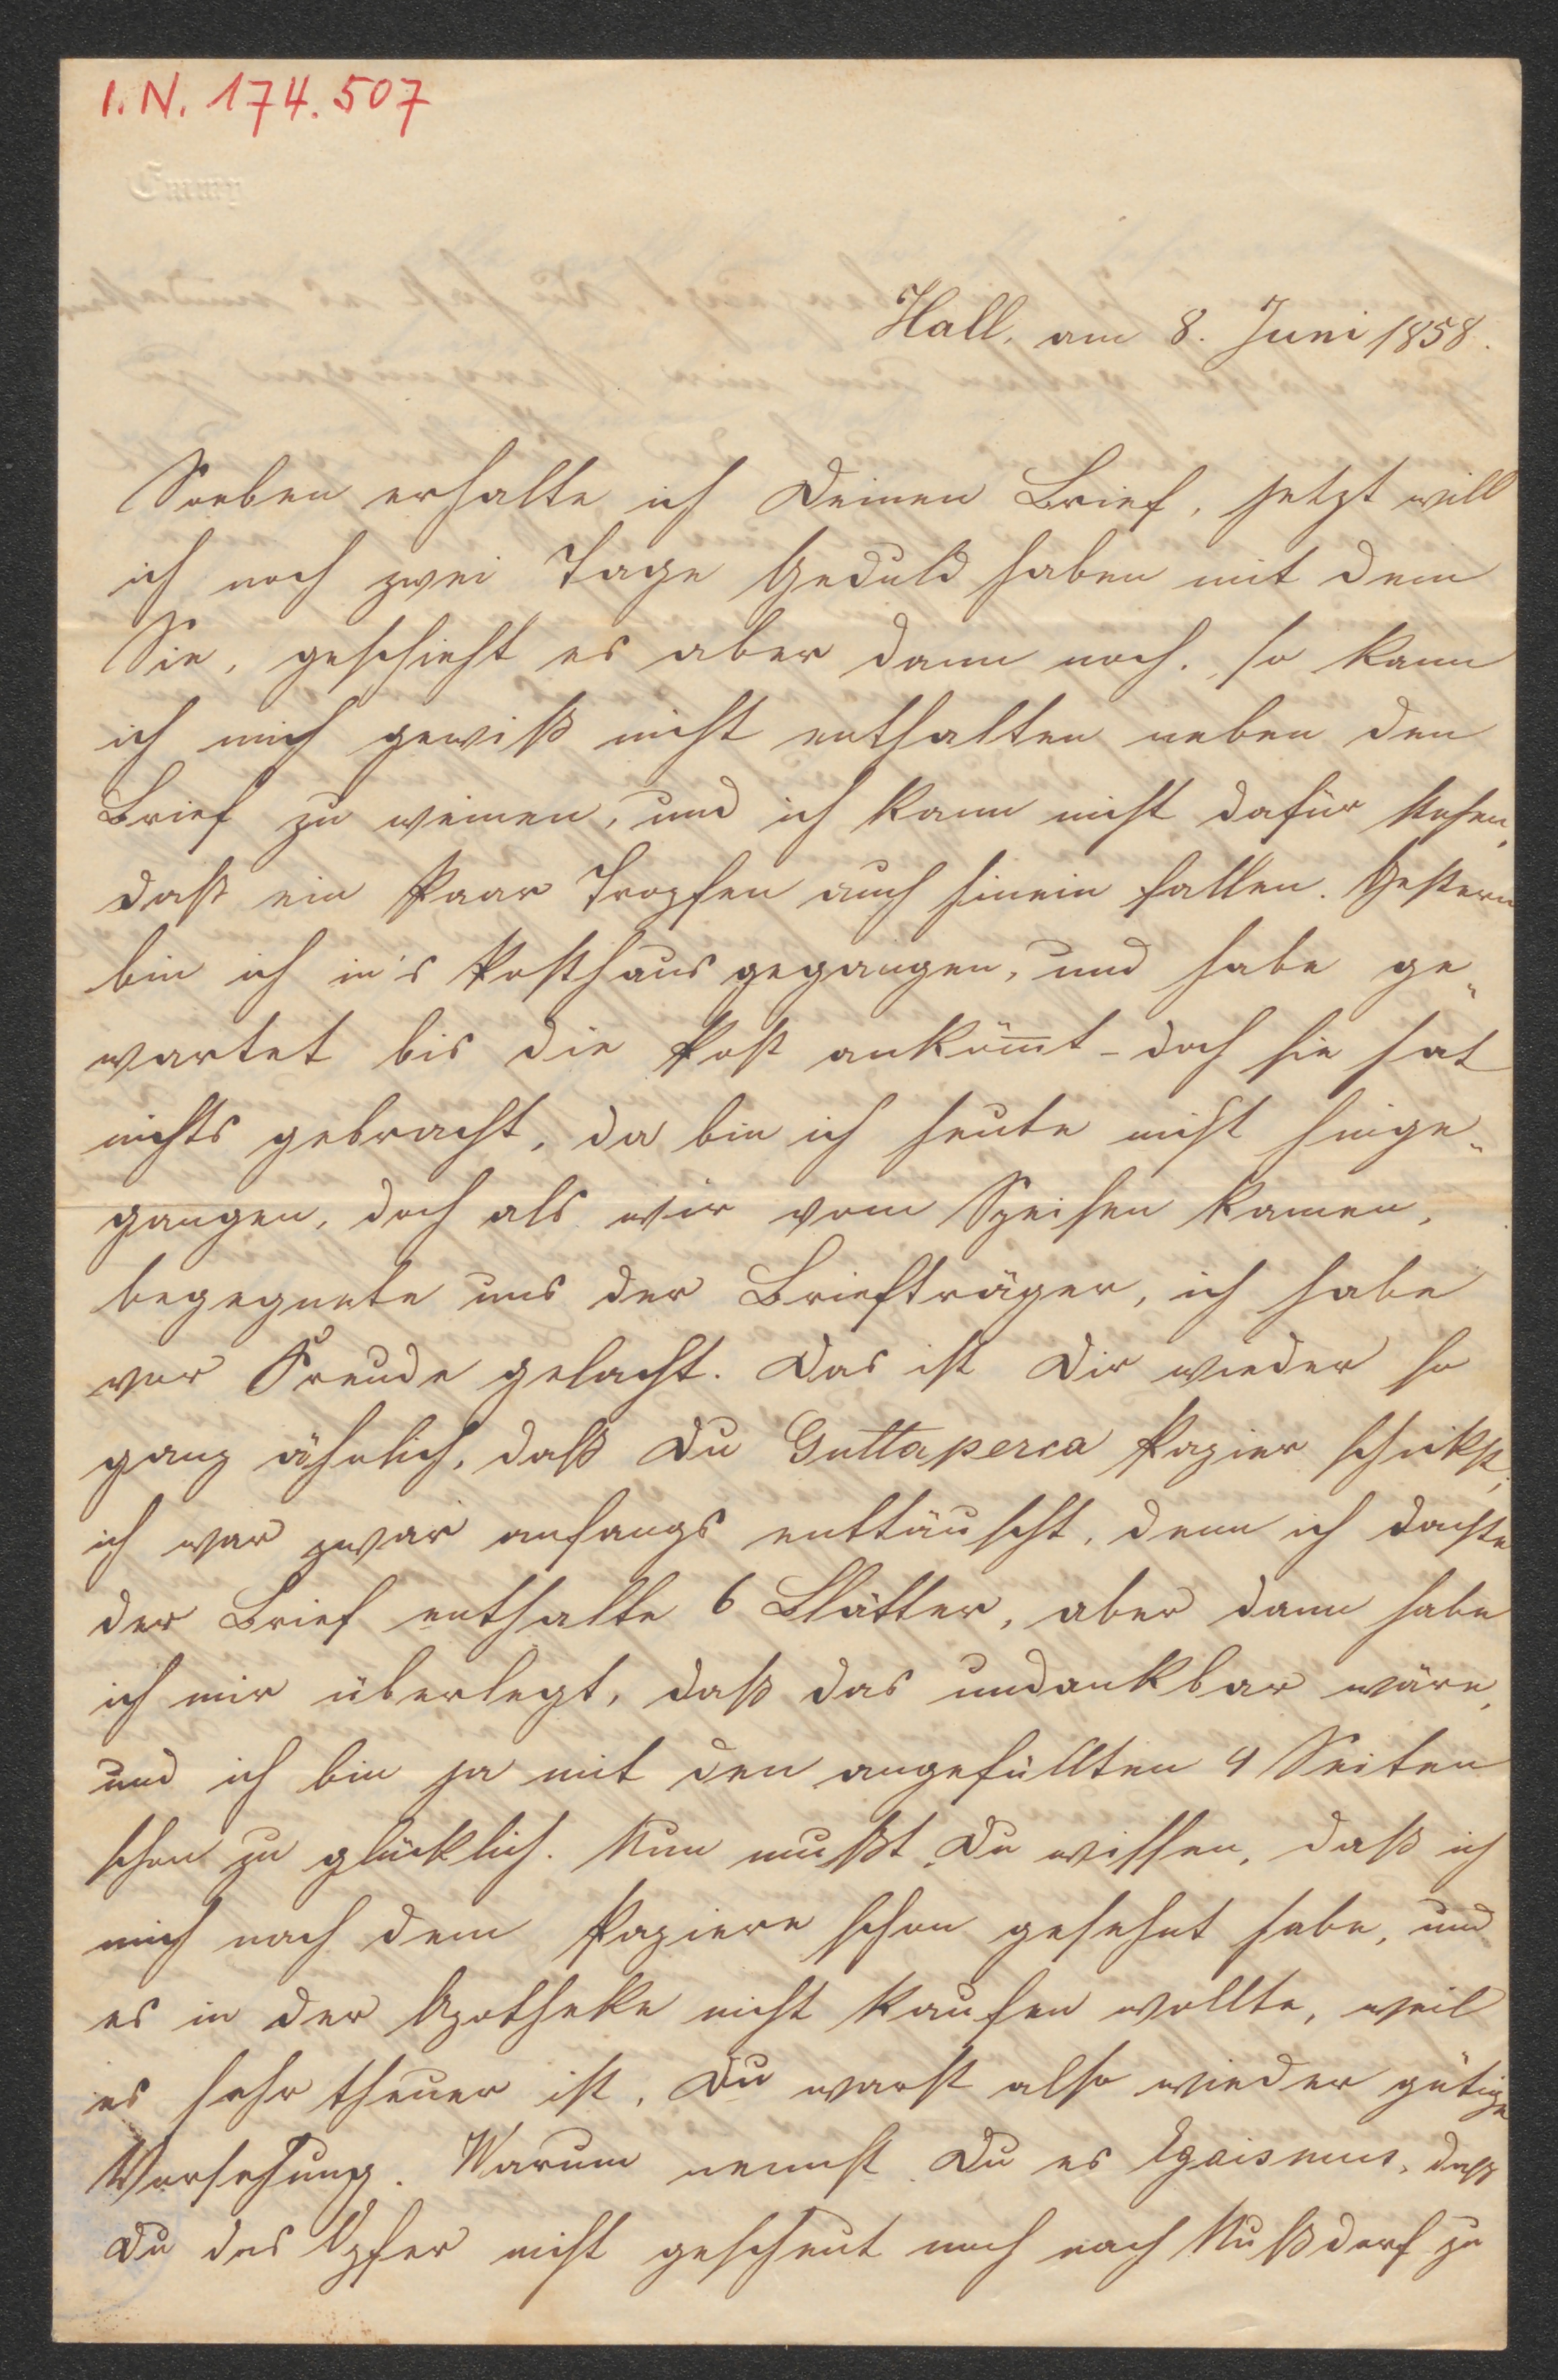 I.N. 174.507
Emmy
Hall, am 8. Juni 1858.
Soeben erhalte ich Deinen Brief, jetzt will
ich noch zwei Tage Geduld haben mit dem
Sie, geschieht es aber dann noch, so kann
ich mich gewiß nicht enthalten neben den
Brief zu weinen, und ich kann nicht dafür stehen,
daß ein Paar Tropfen auch hinein fallen. Gestern
bin ich in's Posthaus gegangen, und habe ge„
wartet bis die Post ankömmt – doch sie hat
nichts gebracht, da bin ich heute nicht hinge„
gangen, doch als wir vom Speisen kamen,
begegnete uns der Briefträger, ich habe
vor Freude gelacht. Das ist Dir wieder so
ganz ähnlich, daß Du Guttaperca Papier schickst,
ich war zwar anfangs enttäuscht, denn ich dachte
der Brief enthalte 6 Blätter, aber dann habe
ich mir überlegt, daß das undankbar wäre,
und ich bin ja mit den angefüllten 4 Seiten
schon zu glücklich. Nun mußt Du wissen, daß ich
mich nach dem Papiere schon gesehnt habe, und
es in der Apotheke nicht kaufen wollte, weil
es sehr theuer ist, Du warst also wieder gütige
Vorsehung. Warum nennst Du es Egoismus, daß
Du das Opfer nicht gescheut noch nach Nußdorf zu